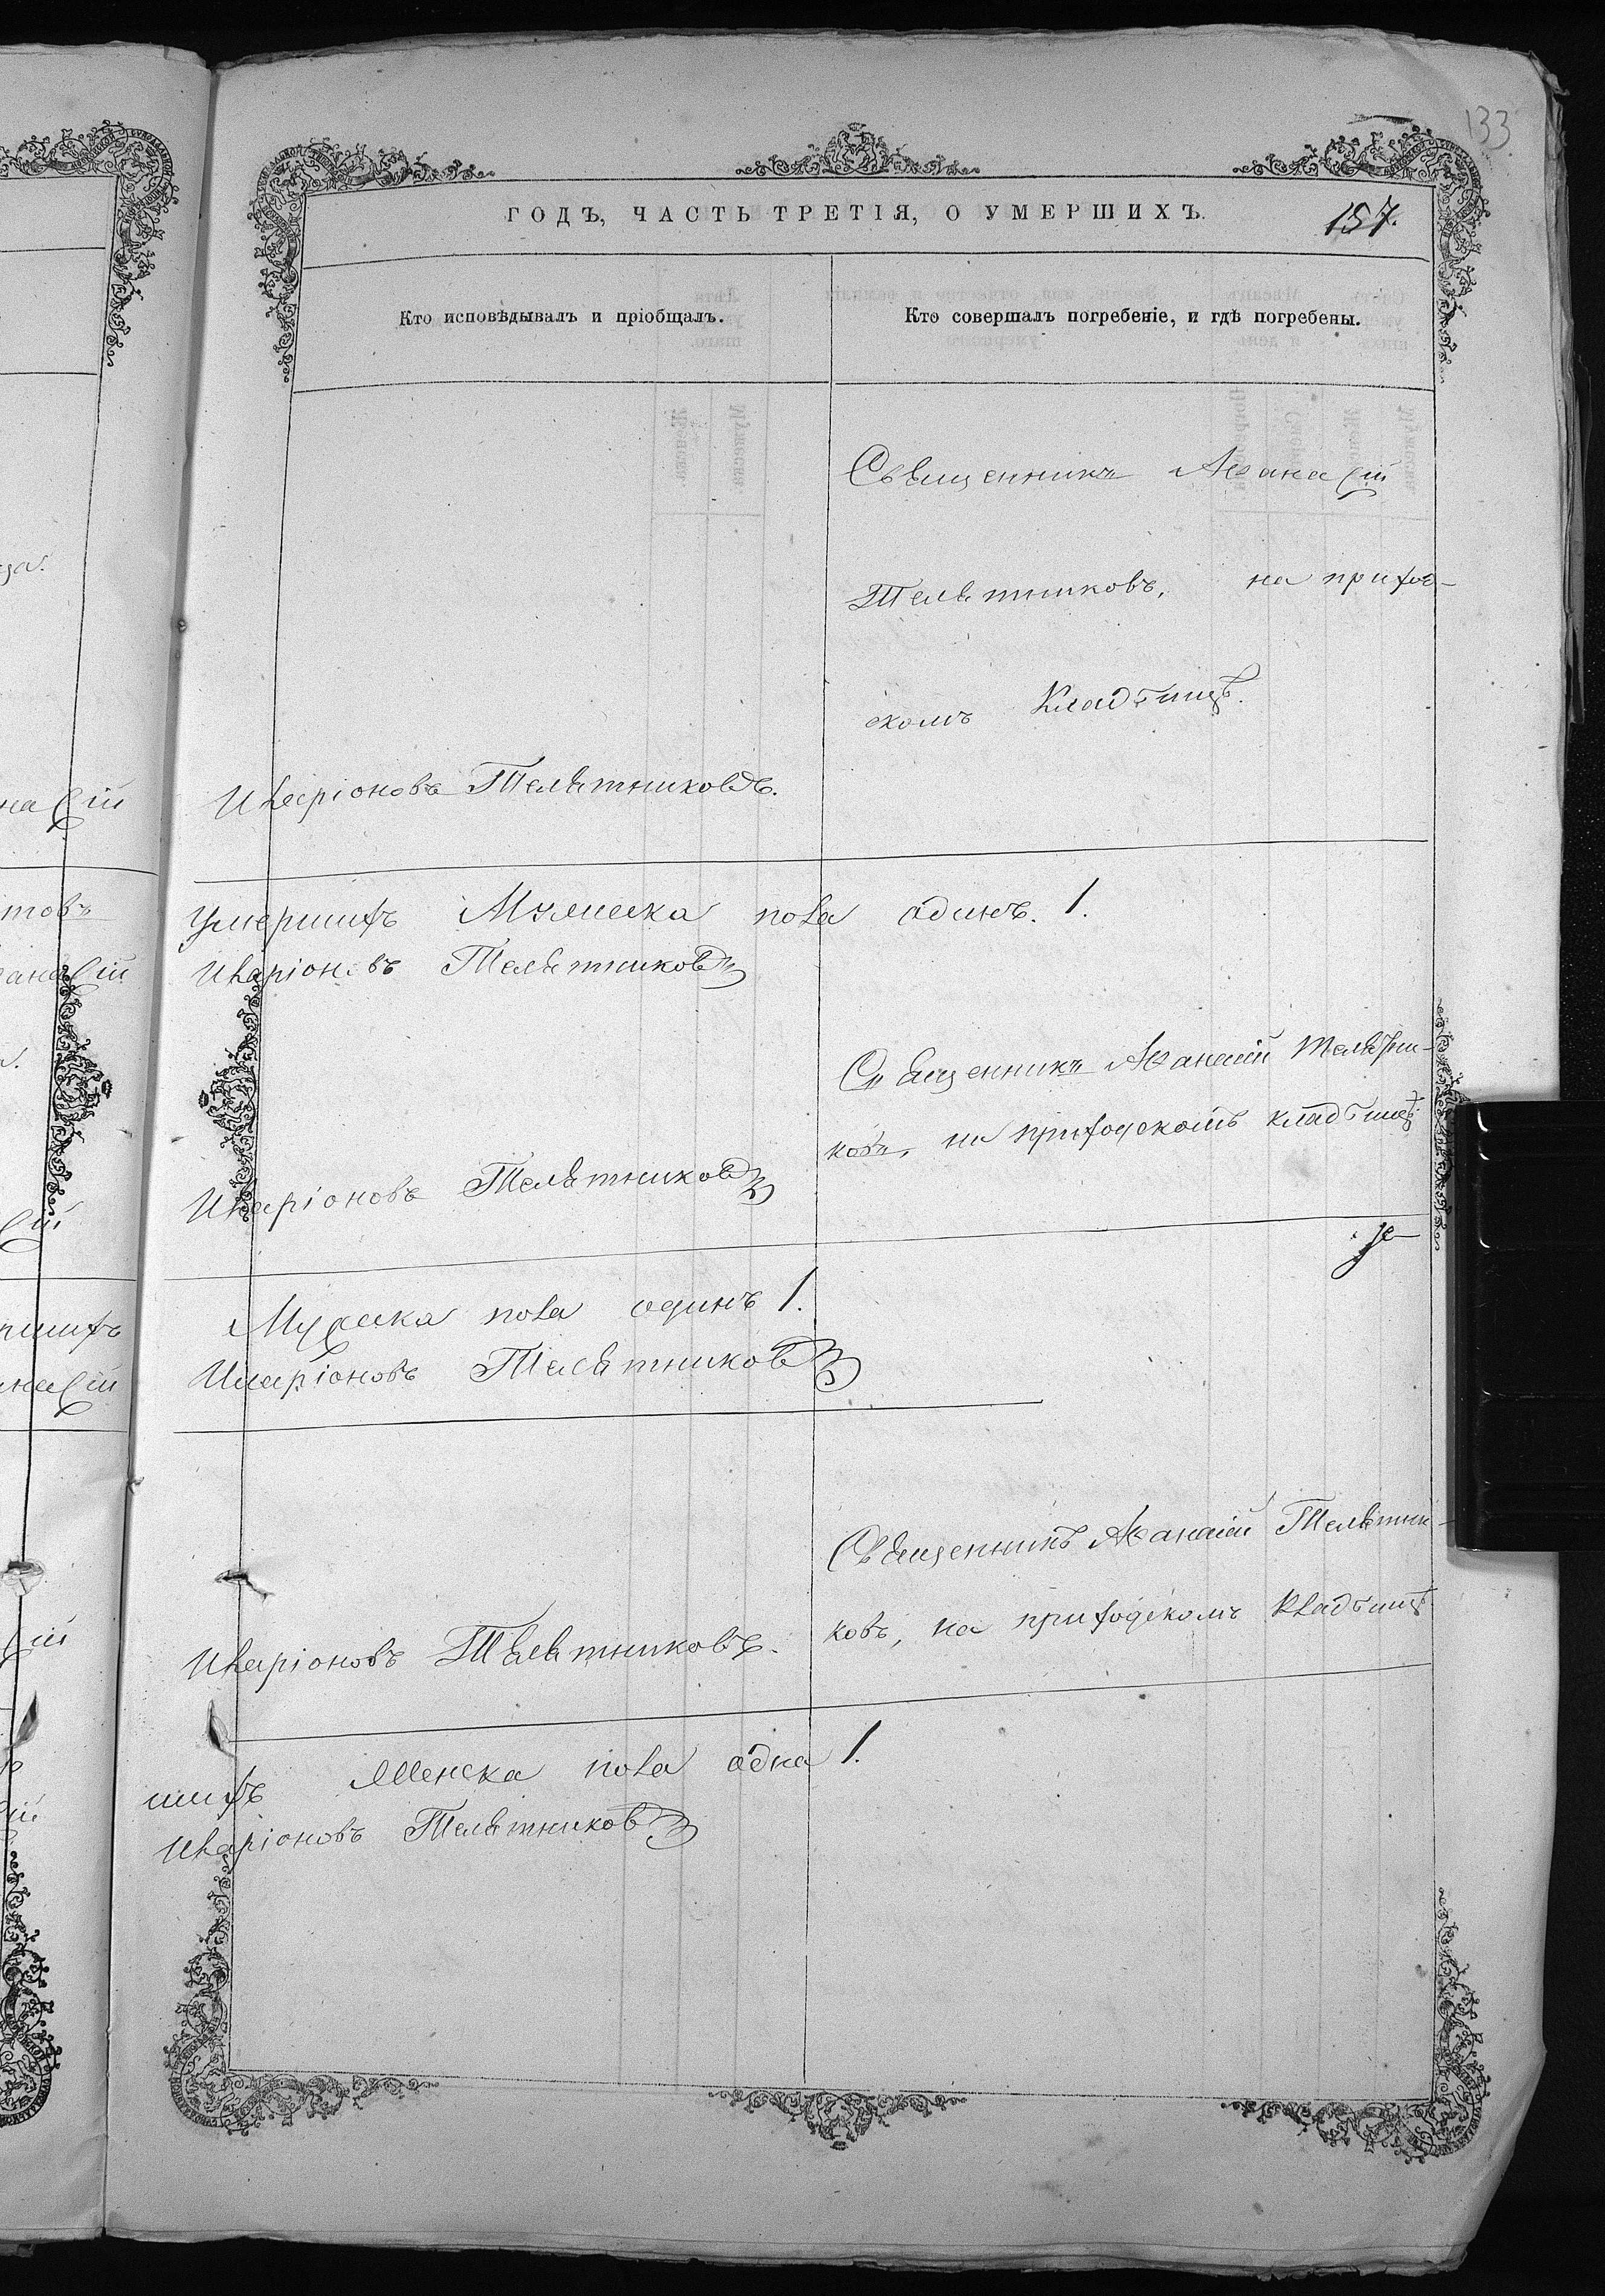 133
ГОДЪ, ЧАСТЬ ТРЕТІЯ, О УМЕРШИХЪ.
157.
Кто исповѣдывалъ и пріобщалъ.
Кто совершалъ погребеніе, и гдѣ погребены.
Священникъ Аѳанасій
Телятниковъ, на приход-
скомъ Кладбищѣ.
Иларіоновъ Телятниковъ.
Умершихъ Мужеска пола одинъ. 1.
Иларіоновъ Телятниковъ
Священникъ Аѳанасій Телятни-
ковъ, на приходскомъ кладбищѣ
Иларіоновъ Телятниковъ
Мужеска пола одинъ 1.
Иларіоновъ Телятниковъ
Священникъ Аѳанасій Телятни-
ковъ, на приходскомъ кладбищѣ
Иларіоновъ Телятниковъ.
шихъ Женска пола одна 1.
Иларіоновъ Телятниковъ